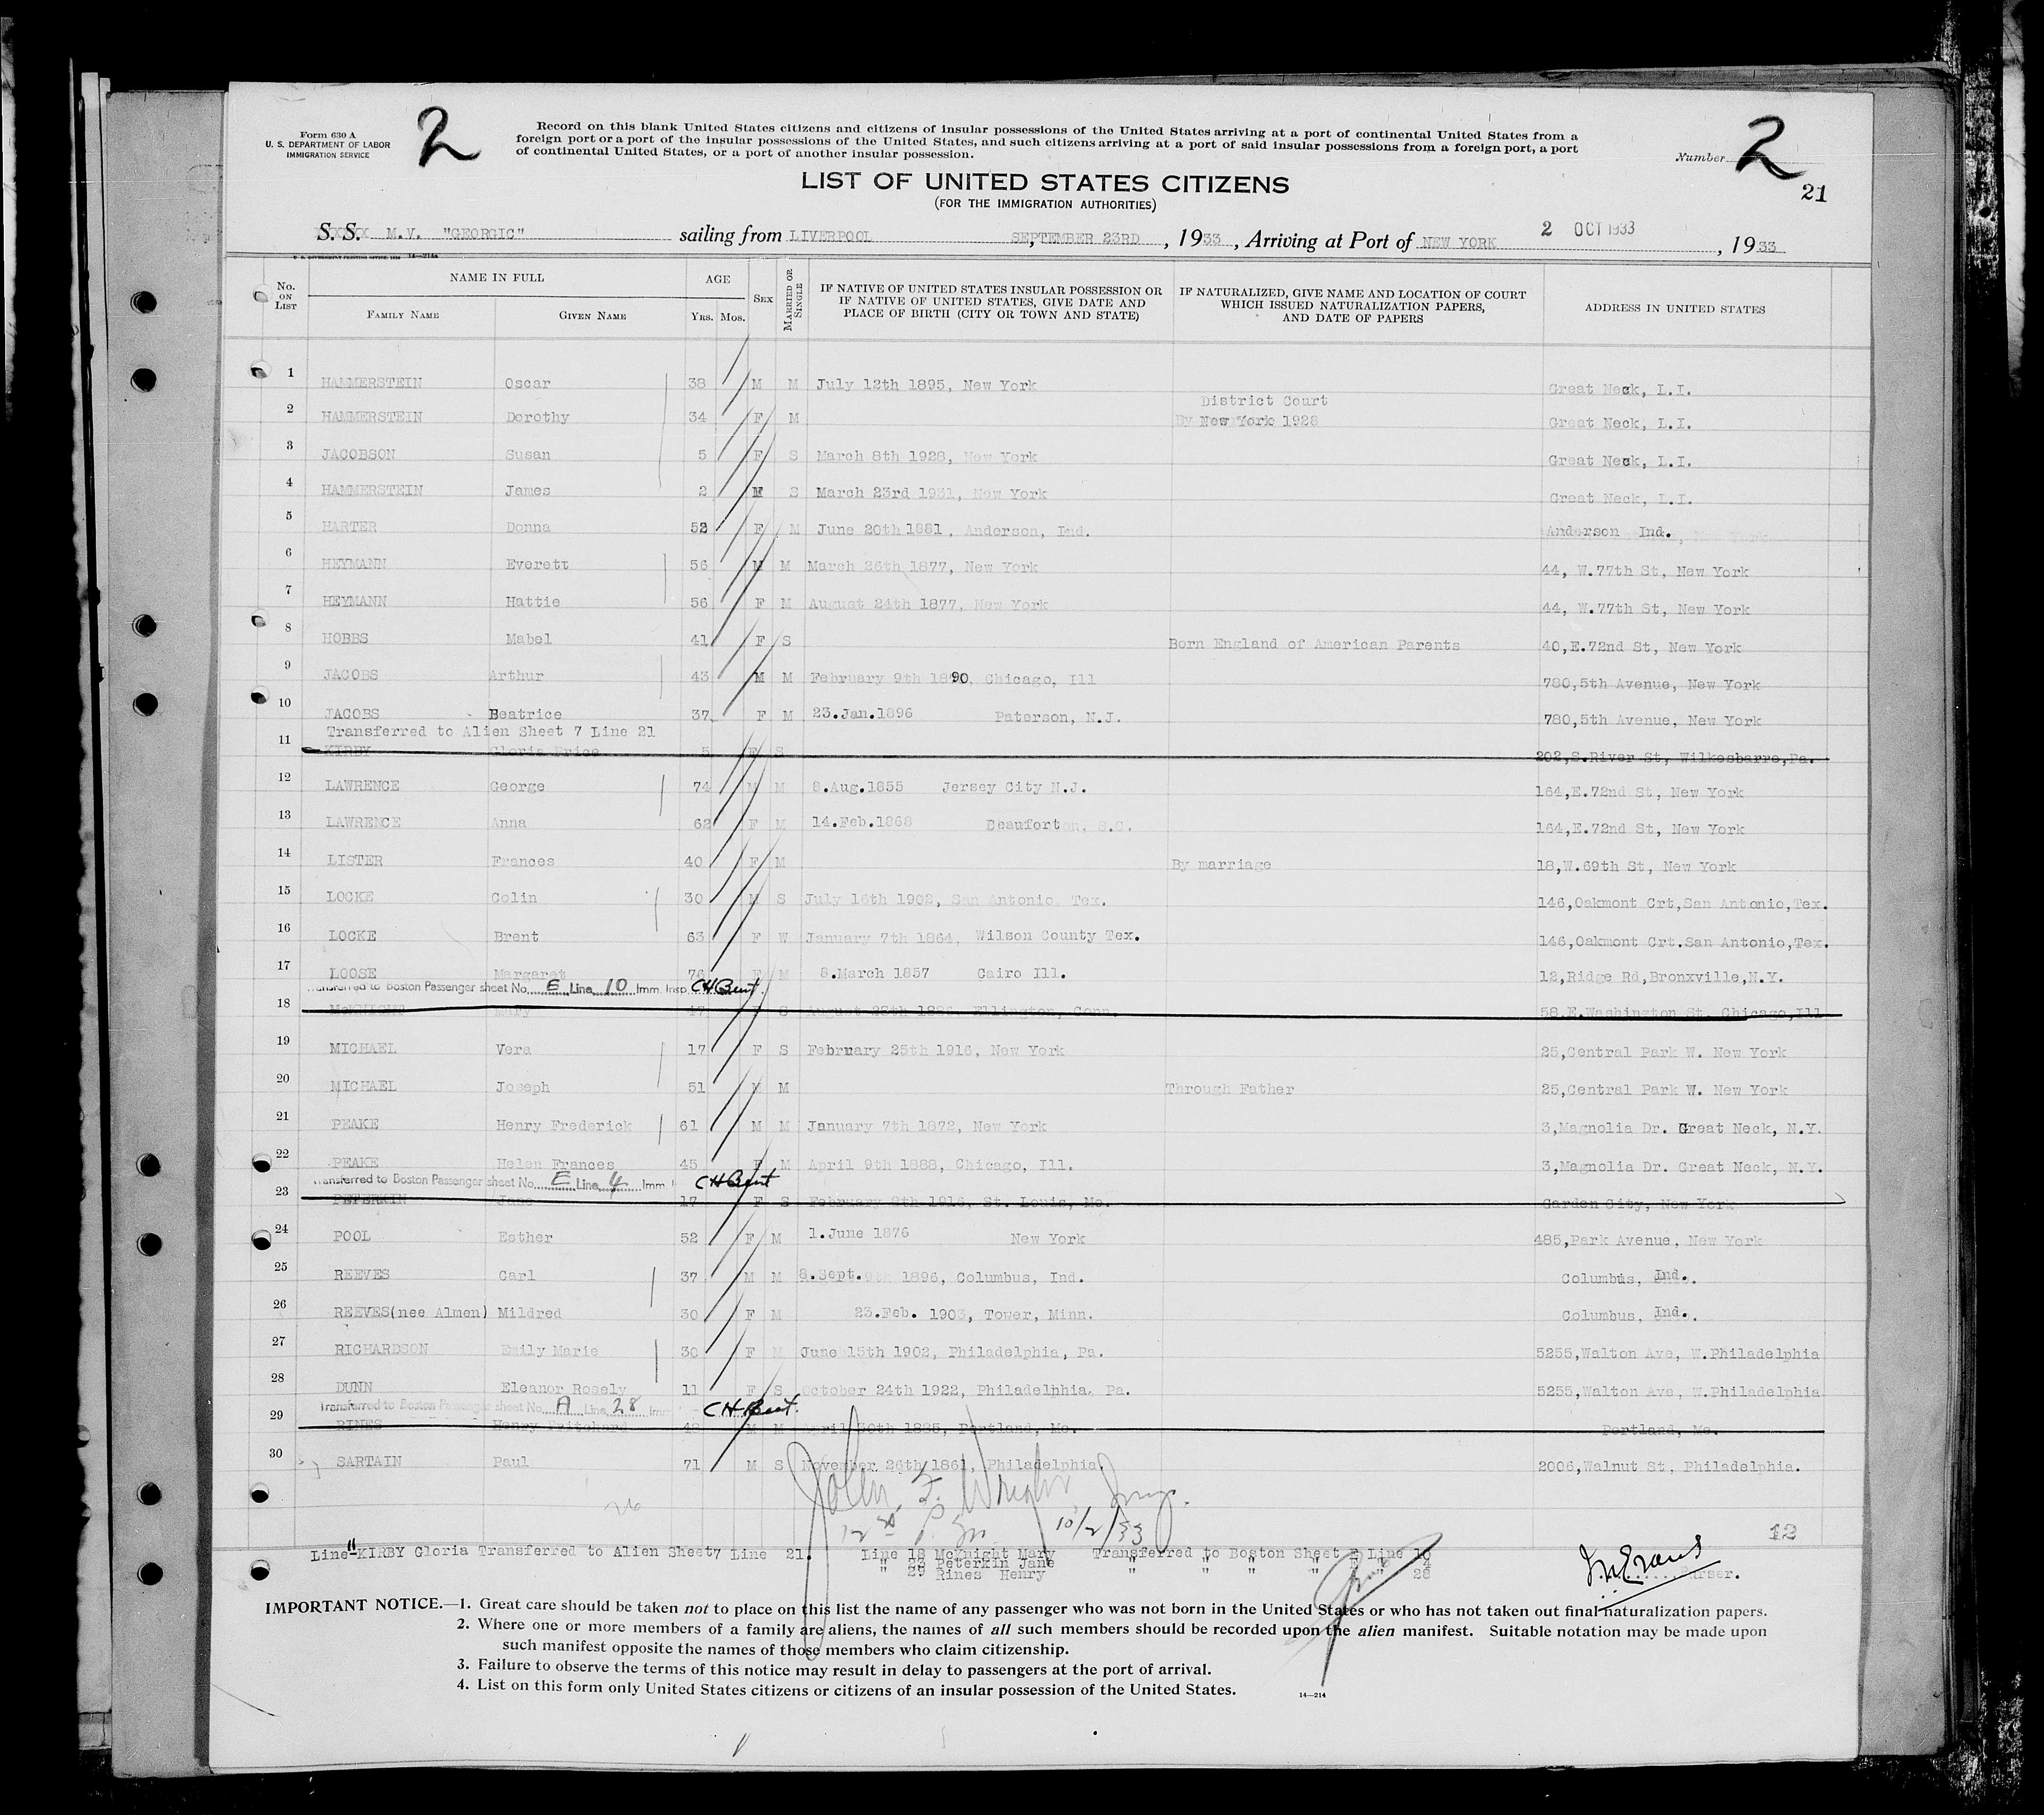 Form 630 A
U. S. DEPARTMENT OF LABOR
IMMIGRATION SERVICE
2
Record on this blank United States citizens and citizens of insular possessions of the United States arriving at a port of continental United States from a
foreign port or a port of the insular possessions of the United States, and such citizens arriving at a port of said insular possessions from a foreign port, a port
of continental United States, or a port of another insular possession.
Number 2
21
LIST OF UNITED STATES CITIZENS
(FOR THE IMMIGRATION AUTHORITIES)
S. S. M.V. "GEORGIC" sailing from LIVERPOOL SEPTEMBER 23RD, 1933, Arriving at Port of NEW YORK 2 OCT 1933, 1933
No. ON LIST
NAME IN FULL
FAMILY NAME
GIVEN NAME
AGE
YRS. MOS.
SEX
MARRIED OR SINGLE
IF NATIVE OF UNITED STATES INSULAR POSSESSION OR
IF NATIVE OF UNITED STATES, GIVE DATE AND
PLACE OF BIRTH (CITY OR TOWN AND STATE)
IF NATURALIZED, GIVE NAME AND LOCATION OF COURT
WHICH ISSUED NATURALIZATION PAPERS,
AND DATE OF PAPERS
ADDRESS IN UNITED STATES
1 HAMMERSTEIN Oscar 38 M M July 12th 1895, New York Great Neck, L.I.
District Court
2 HAMMERSTEIN Dorothy 34 F M By New York 1928 Great Neck, L.I.
3 JACOBSON Susan 5 F S March 8th 1928, New York Great Neck, L.I.
4 HAMMERSTEIN James 2 M S March 23rd 1931, New York Great Neck, L.I.
5 HARTER Donna 52 F M June 20th 1881, Anderson, Ind. Anderson Ind.
6 HEYMANN Everett 56 M M March 26th 1877, New York 44, W.77th St, New York
7 HEYMANN Hattie 56 F M August 24th 1877, New York 44, W.77th St, New York
8 HOBBS Mabel 41 F S Born England of American Parents 40,E.72nd St, New York
9 JACOBS Arthur 43 M M February 9th 1890, Chicago, Ill 780,5th Avenue, New York
10 JACOBS Beatrice 37 F M 23.Jan.1896 Paterson, N.J. 780,5th Avenue, New York
Transferred to Alien Sheet 7 Line 21
11 KIRBY Gloria Price 5 F S 202,S.River St, Wilkesbarre,Pa.
12 LAWRENCE George 74 M M 8.Aug.1855 Jersey City N.J. 164,E.72nd St, New York
13 LAWRENCE Anna 62 F M 14.Feb.1868 Beaufort, S.C. 164,E.72nd St, New York
14 LISTER Frances 40 F M By marriage 18,W.69th St, New York
15 LOCKE Colin 30 M S July 16th 1902, San Antonio, Tex. 146,Oakmont Crt,San Antonio,Tex.
16 LOCKE Brent 63 F W January 7th 1864, Wilson County Tex. 146,Oakmont Crt.San Antonio,Tex.
17 LOOSE Margaret 76 F M 8.March 1857 Cairo Ill. 12,Ridge Rd,Bronxville,N.Y.
Transferred to Boston Passenger sheet No. E Line 10 Imm. Insp. C H Bent.
18 McKNIGHT Mary 47 F S Ellington, Conn. 58,E.Washington St. Chicago,Ill
19 MICHAEL Vera 17 F S February 25th 1916, New York 25,Central Park W. New York
20 MICHAEL Joseph 51 M M Through Father 25,Central Park W. New York
21 PEAKE Henry Frederick 61 M M January 7th 1872, New York 3,Magnolia Dr. Great Neck, N.Y.
22 PEAKE Helen Frances 45 F M April 9th 1888, Chicago, Ill. 3,Magnolia Dr. Great Neck, N.Y.
Transferred to Boston Passenger sheet No. E Line 4 Imm C H Bent
23 PETERKIN Jane 17 F S February 8th 1916, St. Louis, Mo. Garden City, New York
24 POOL Esther 52 F M 1.June 1876 New York 485,Park Avenue, New York
25 REEVES Carl 37 M M 8.Sept. 1896, Columbus, Ind. Columbus, Ind.
26 REEVES(nee Almen) Mildred 30 F M 23.Feb. 1903, Tower, Minn. Columbus, Ind.
27 RICHARDSON Emily Marie 30 F M June 15th 1902, Philadelphia, Pa. 5255,Walton Ave, W.Philadelphia
28 DUNN Eleanor Rosely 11 F S October 24th 1922, Philadelphia, Pa. 5255,Walton Ave, W.Philadelphia
Transferred to Boston Passenger sheet No. A Line 28 Imm C H Bent.
29 RINES Henry Pritchard 48 M M April 30th 1885, Portland, Me. Portland, Me.
30 SARTAIN Paul 71 M S November 26th 1861, Philadelphia 2006,Walnut St, Philadelphia.
John F. Wright Insp.
10/2/33
12
Line 11 KIRBY Gloria Transferred to Alien Sheet7 Line 21. Line 18 McKnight Mary Transferred to Boston Sheet E Line 10
" 23 Peterkin Jane " " " " E " 4
" 29 Rines Henry " " " " " 28
Evans Purser.
IMPORTANT NOTICE.—1. Great care should be taken not to place on this list the name of any passenger who was not born in the United States or who has not taken out final naturalization papers.
2. Where one or more members of a family are aliens, the names of all such members should be recorded upon the alien manifest. Suitable notation may be made upon
such manifest opposite the names of those members who claim citizenship.
3. Failure to observe the terms of this notice may result in delay to passengers at the port of arrival.
4. List on this form only United States citizens or citizens of an insular possession of the United States.
14—214